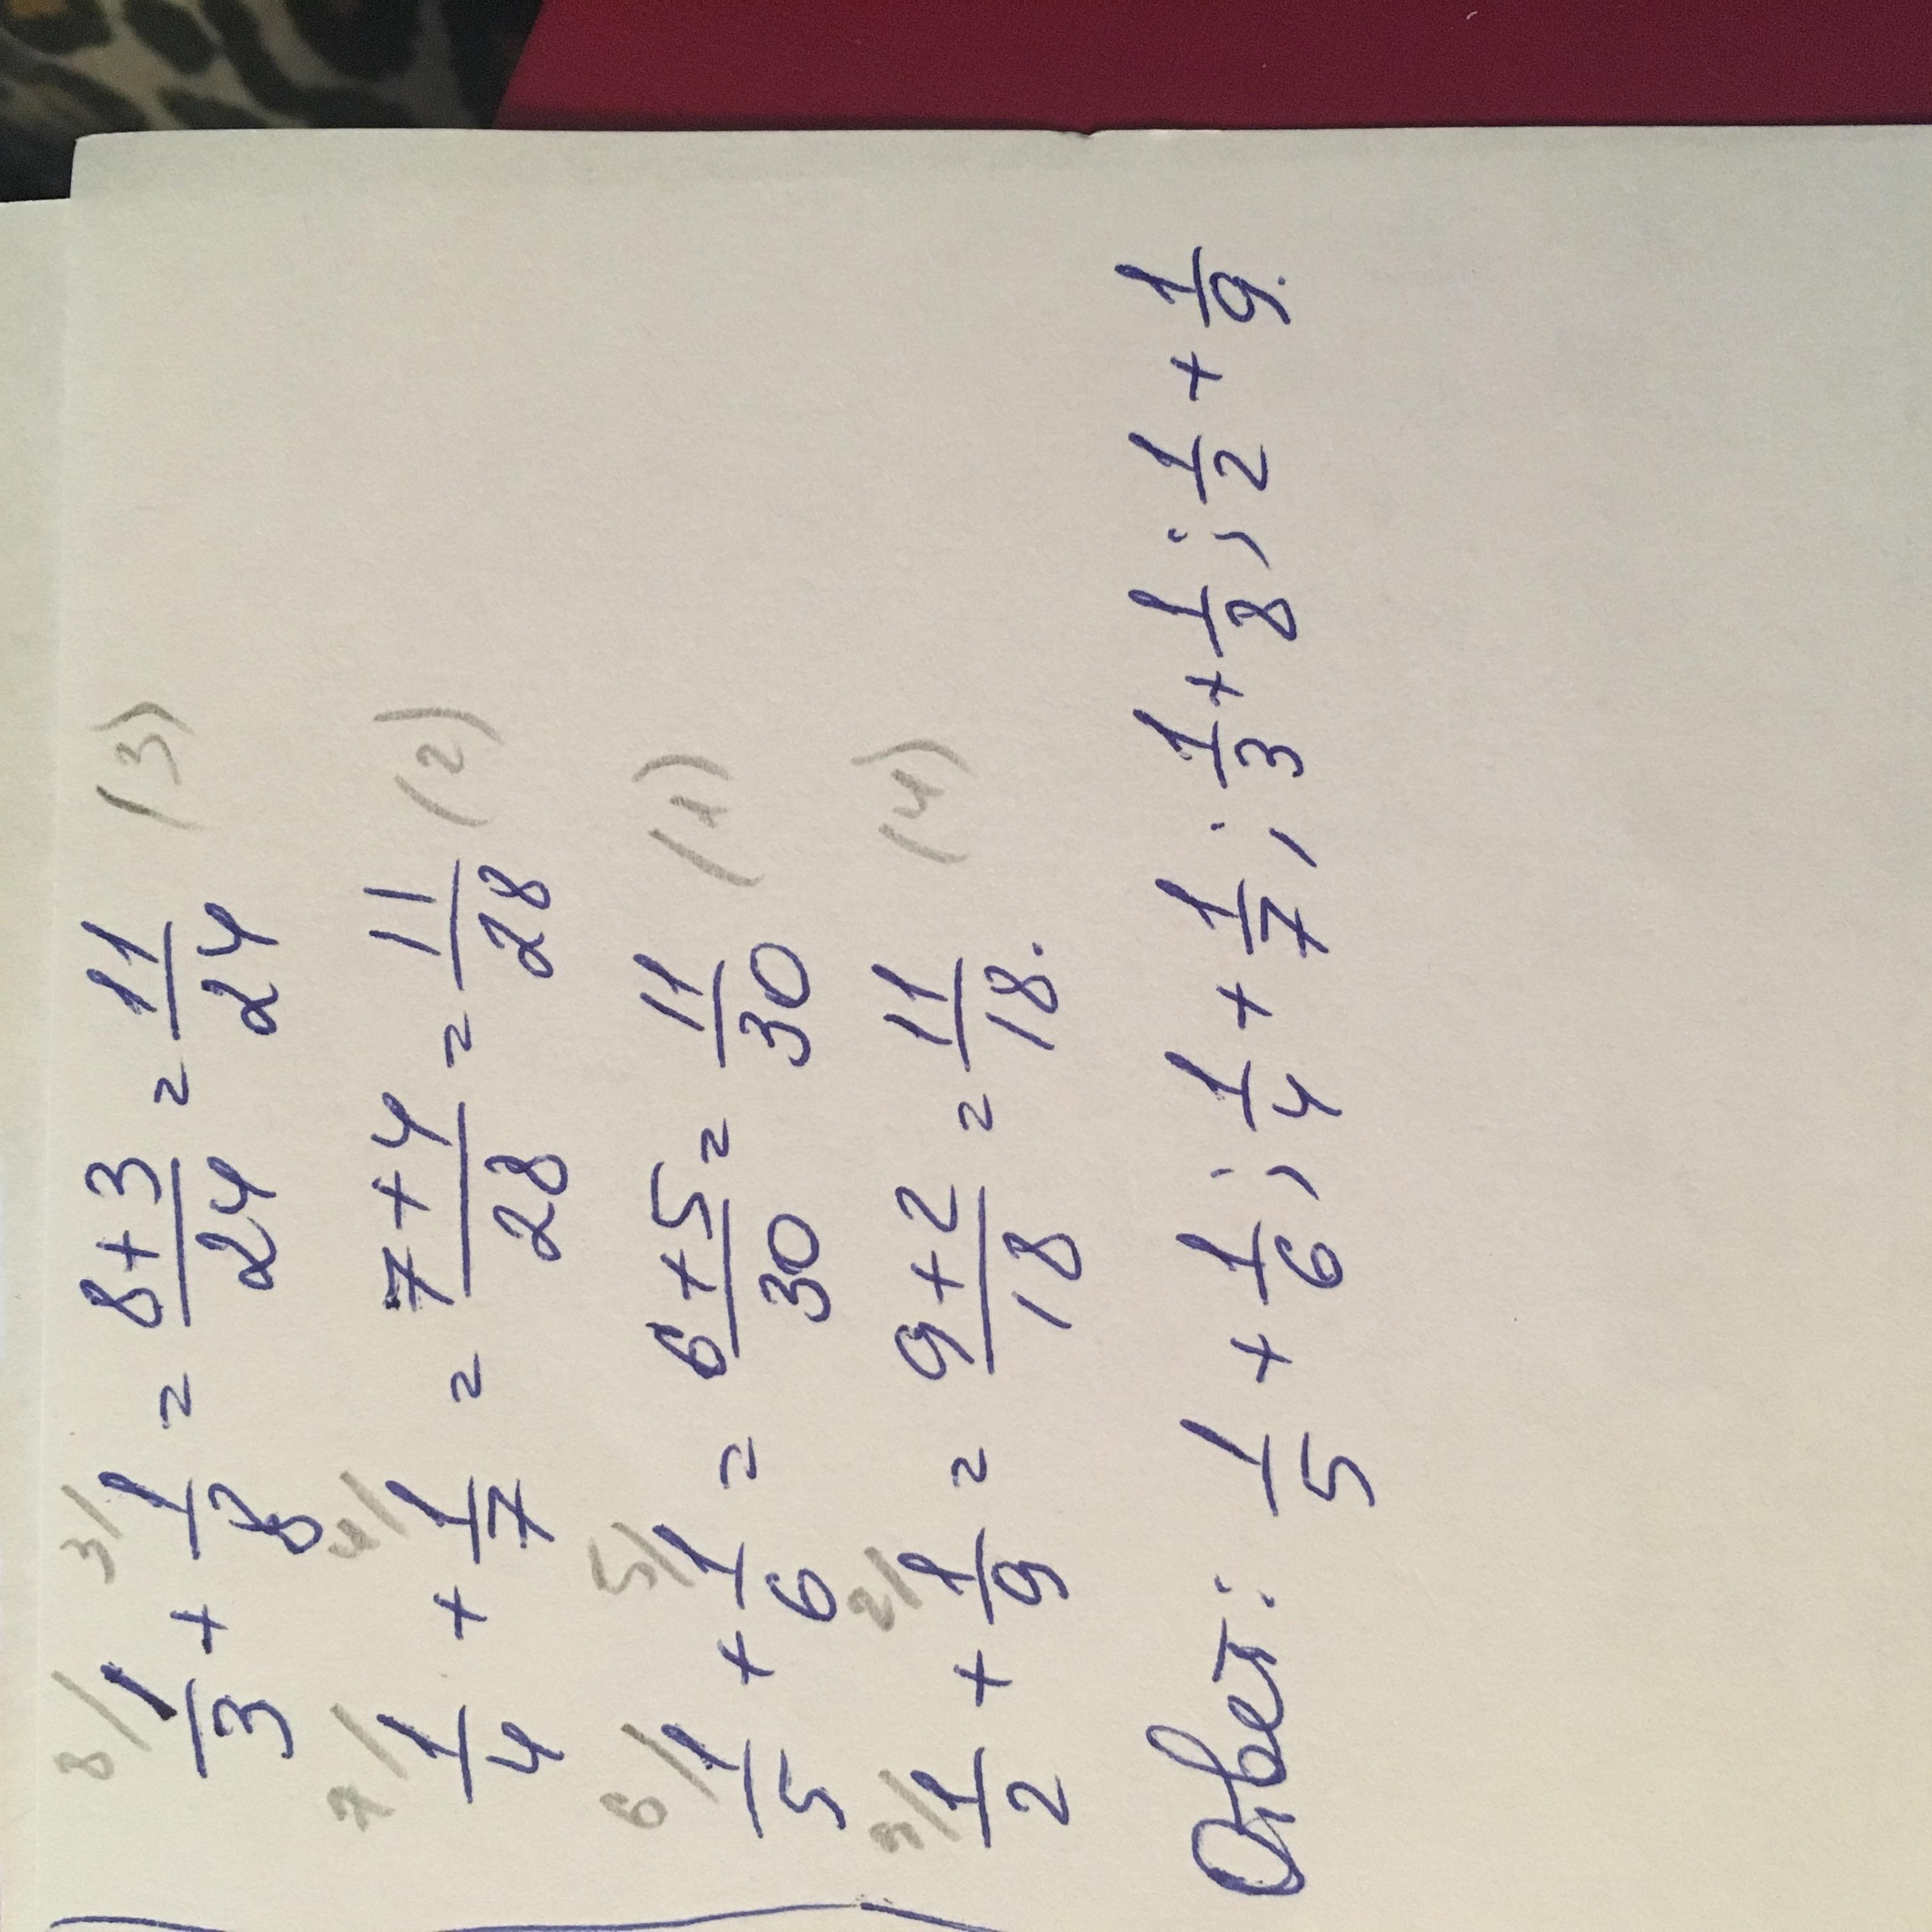 8/ 1/3 + 3/ 1/8 = (8+3)/24 = 11/24 (3)
7/ 1/4 + 4/ 1/7 = (7+4)/28 = 11/28 (2)
6/ 1/5 + 5/ 1/6 = (6+5)/30 = 11/30 (1)
9/ 1/2 + 2/ 1/9 = (9+2)/18 = 11/18. (4)
Ответ: 1/5 + 1/6; 1/4 + 1/7; 1/3 + 1/8; 1/2 + 1/9.